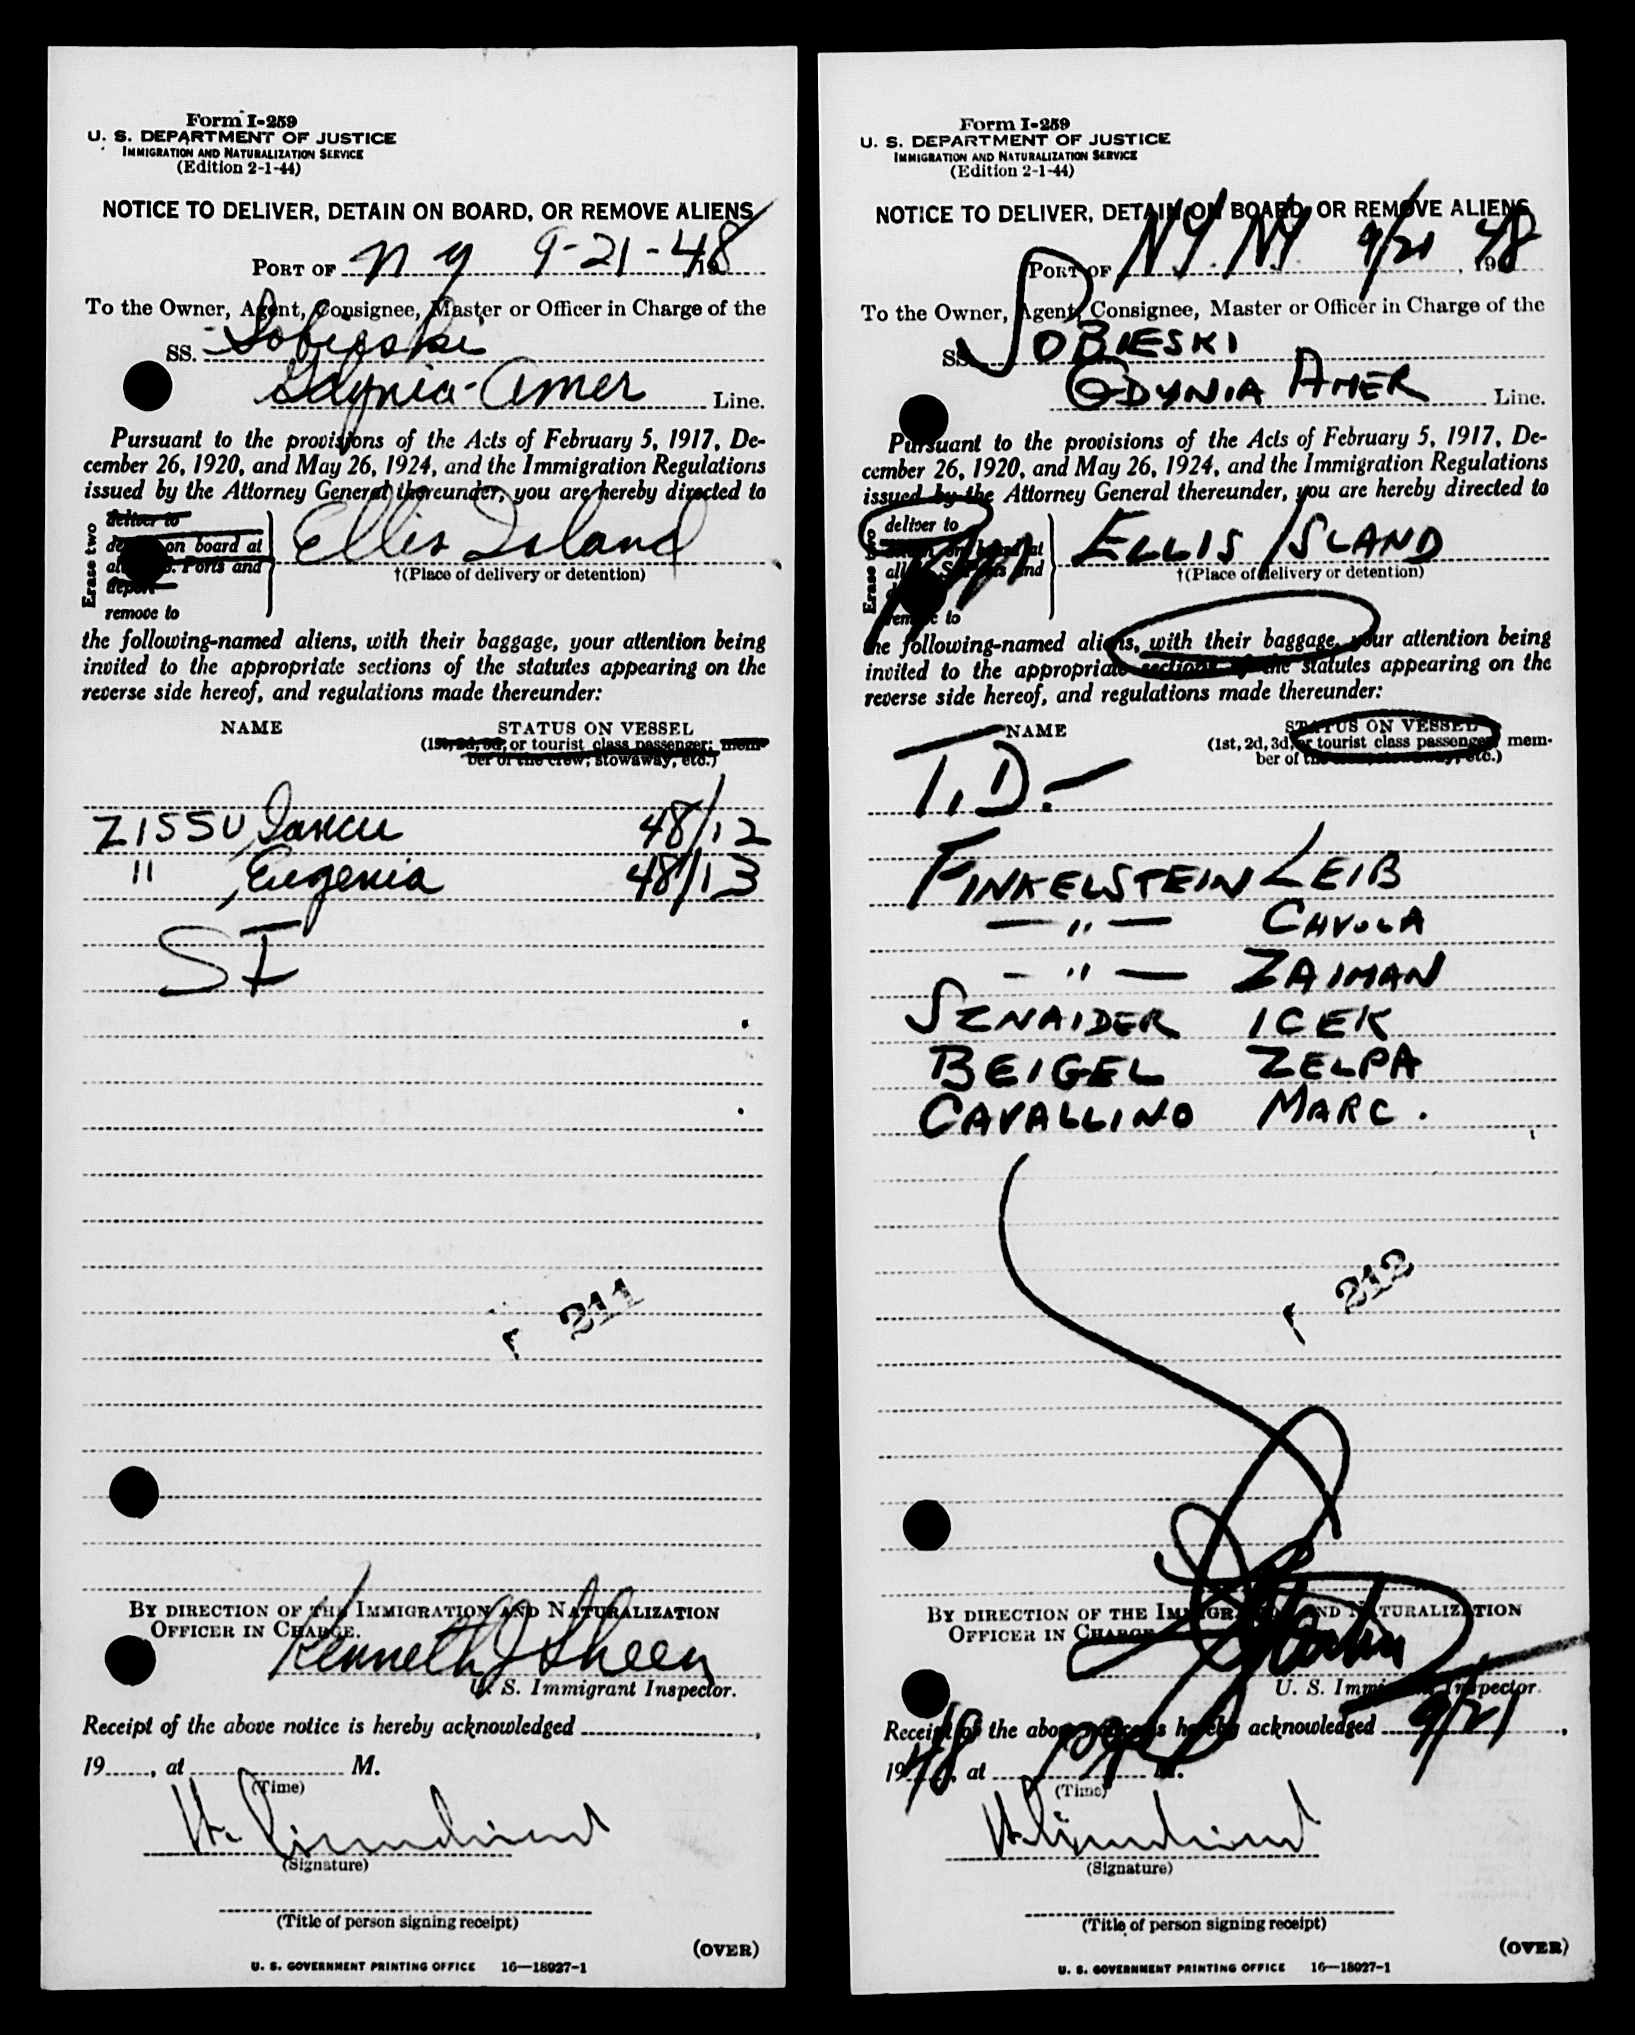 Form I-259
U. S. DEPARTMENT OF JUSTICE
IMMIGRATION AND NATURALIZATION SERVICE
(Edition 2-1-44)
NOTICE TO DELIVER, DETAIN ON BOARD, OR REMOVE ALIENS
PORT OF N Y 9-21-48 19
To the Owner, Agent, Consignee, Master or Officer in Charge of the
SS. Sobieski
Gdynia-Amer Line.
Pursuant to the provisions of the Acts of February 5, 1917, De-
cember 26, 1920, and May 26, 1924, and the Immigration Regulations
issued by the Attorney General thereunder, you are hereby directed to
Erase two
deliver to
on board at
Ports and
deport
remove to
Ellis Island
†(Place of delivery or detention)
the following-named aliens, with their baggage, your attention being
invited to the appropriate sections of the statutes appearing on the
reverse side hereof, and regulations made thereunder:
NAME STATUS ON VESSEL
(1st, 2d, 3d, or tourist class passenger; mem-
ber of the crew; stowaway, etc.)
ZISSU, Iancu 48/12
" , Eugenia 48/13
SI
211
BY DIRECTION OF THE IMMIGRATION AND NATURALIZATION
OFFICER IN CHARGE.
Kenneth J Sheen
U. S. Immigrant Inspector.
Receipt of the above notice is hereby acknowledged ,
19 , at M.
(Time)
(Signature)
(Title of person signing receipt)
(OVER)
U. S. GOVERNMENT PRINTING OFFICE 16—18927-1
Form I-259
U. S. DEPARTMENT OF JUSTICE
IMMIGRATION AND NATURALIZATION SERVICE
(Edition 2-1-44)
NOTICE TO DELIVER, DETAIN ON BOARD, OR REMOVE ALIENS
PORT OF NY. NY 9/21 , 19 48
To the Owner, Agent, Consignee, Master or Officer in Charge of the
SS. SOBIESKI
GDYNIA AMER Line.
Pursuant to the provisions of the Acts of February 5, 1917, De-
cember 26, 1920, and May 26, 1924, and the Immigration Regulations
issued by the Attorney General thereunder, you are hereby directed to
Erase two
deliver to
on board at
all and
remove to
ELLIS ISLAND
†(Place of delivery or detention)
the following-named aliens, with their baggage, your attention being
invited to the appropriate sections of the statutes appearing on the
reverse side hereof, and regulations made thereunder:
NAME STATUS ON VESSEL
(1st, 2d, 3d, or tourist class passenger; mem-
ber of the crew; stowaway, etc.)
T.D.-
FINKELSTEIN LEIB
— " —
— " — ZAIMAN
SZNAIDER ICEK
BEIGEL ZELPA
CAVALLINO MARC.
212
BY DIRECTION OF THE IMMIGRATION AND NATURALIZATION
OFFICER IN CHARGE.
U. S. Immigrant Inspector.
Receipt of the above notice is hereby acknowledged 9/21 ,
19 48, at M.
(Time)
(Signature)
(Title of person signing receipt)
(OVER)
U. S. GOVERNMENT PRINTING OFFICE 16—18927-1